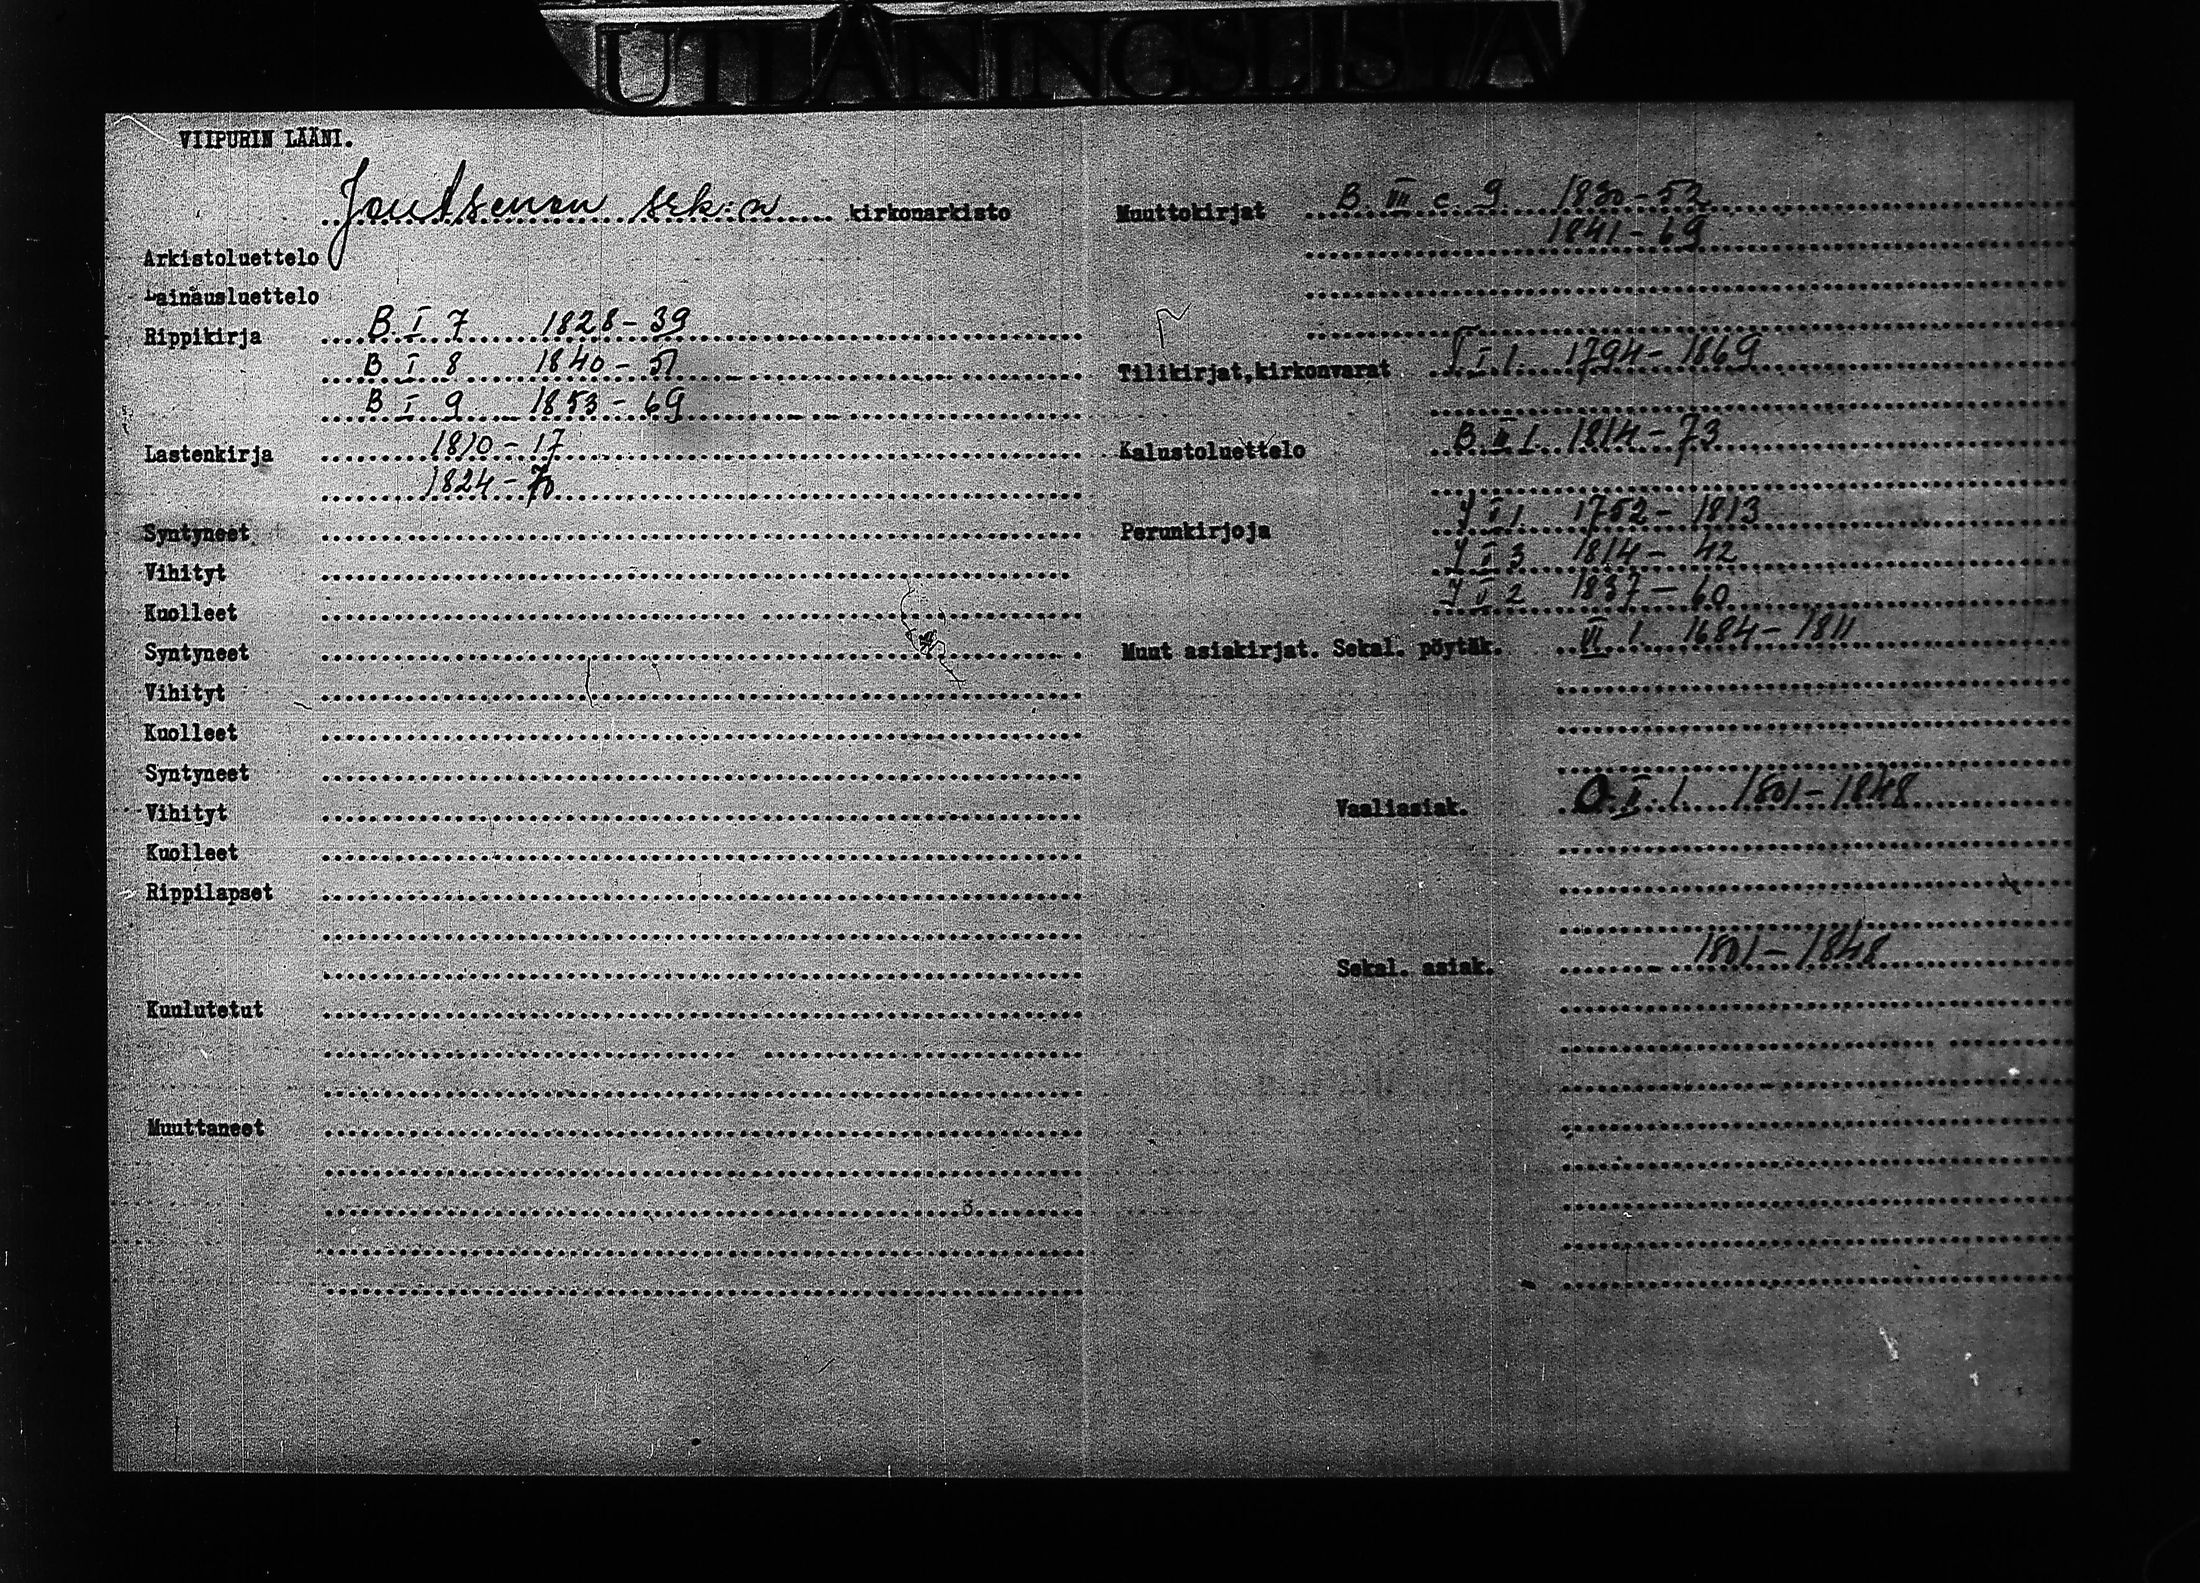 UTLÅNINGSLISTA
VIIPURIN LÄÄNI.
Joutsenon srk:n kirkonarkisto
Arkistoluettelo
Lainausluettelo
Rippikirja B. I 7 1828-39
B I 8 1840-51
B I 9 1853-69
Lastenkirja 1810-17
1824-70
Syntyneet
Vihityt
Kuolleet
Syntyneet
Vihityt
Kuolleet
Syntyneet
Vihityt
Kuolleet
Rippilapset
Kuulutetut
Muuttaneet
Muuttokirjat B III c 9 1830-52
1841-69
Tilikirjat,kirkonvarat I 1 1794-1869
Kalustoluettelo B II 1 1814-73
Perunkirjoja J II 1 1752-1813
J II 3 1814-42
J II 2 1837-60
Muut asiakirjat. Sekal. pöytäk. VI 1 1684-1811
Vaaliasiak. O II 1 1801-1848
Sekal. asiak. 1801-1848